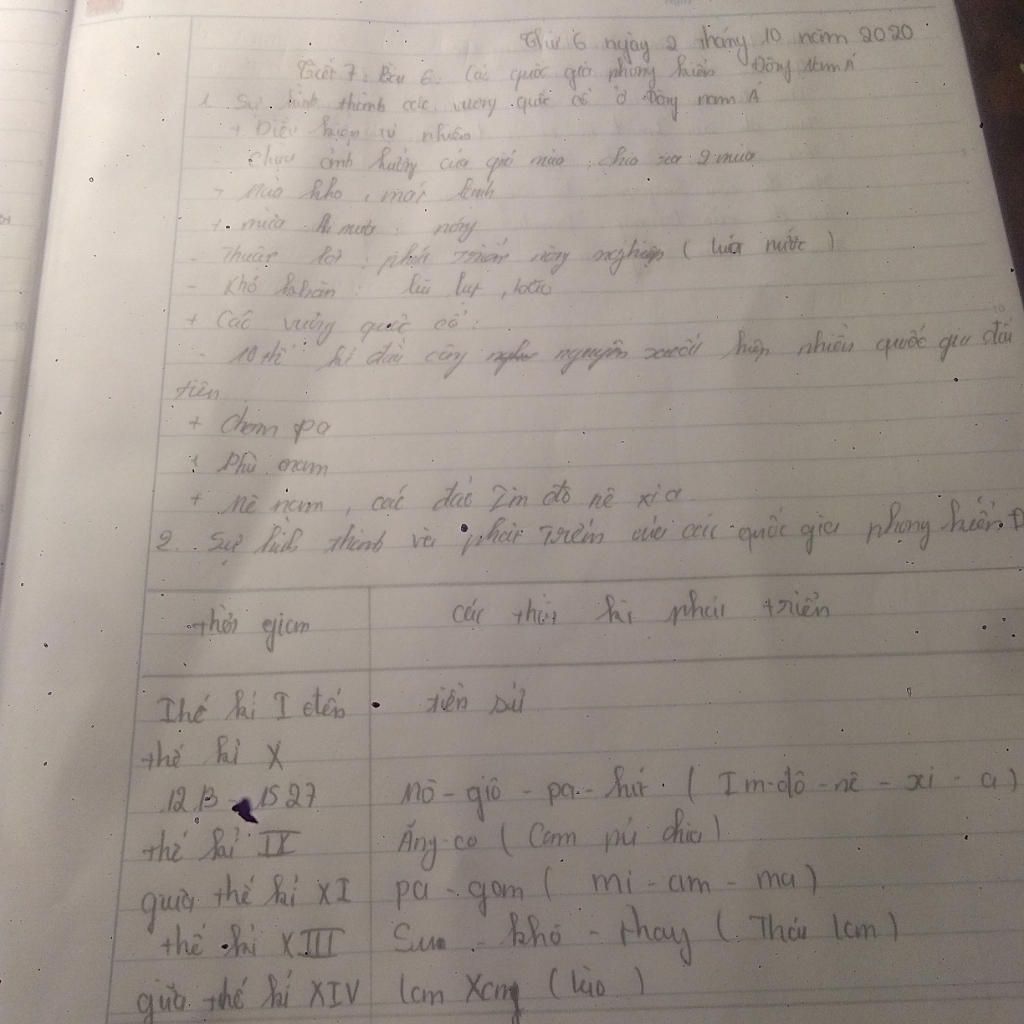 Thứ 6 ngày 2 tháng 10 năm 2020
Tiết 7: Bài 6: Các quốc gia phong kiến Đông Nam Á
1. Sự hình thành các vương quốc cổ ở Đông nam Á
+ Điều kiện tự nhiên
chịu ảnh hưởng của gió mùa chia ra 2 mùa
- Mùa khô, mát lạnh
+ mùa mưa: nóng
- Thuận lợi: phát triển nông nghiệp (lúa nước)
- Khó khăn: lũ lụt, bão
+ Các vương quốc cổ:
- 10 thế kỉ đầu công nguyên xuất hiện nhiều quốc gia đầu
tiên
+ Chăm pa
+ Phù nam
+ Mê nam, các đảo In đô nê xi a
2. Sự hình thành và phát triển của các quốc gia phong kiến Đ
thời gian các thời kì phát triển
Thế kỉ I đến tiền sử
thế kỉ X
1213 - 1527 Mô-giô-pa-hít (In-đô-nê-xi-a)
thế kỉ IX Ăng-co (Cam pu chia)
giữa thế kỉ XI pa-gan (mi-an-ma)
thế kỉ XIII Su-khô-thay (Thái lan)
giữa thế kỉ XIV lan Xang (lào)